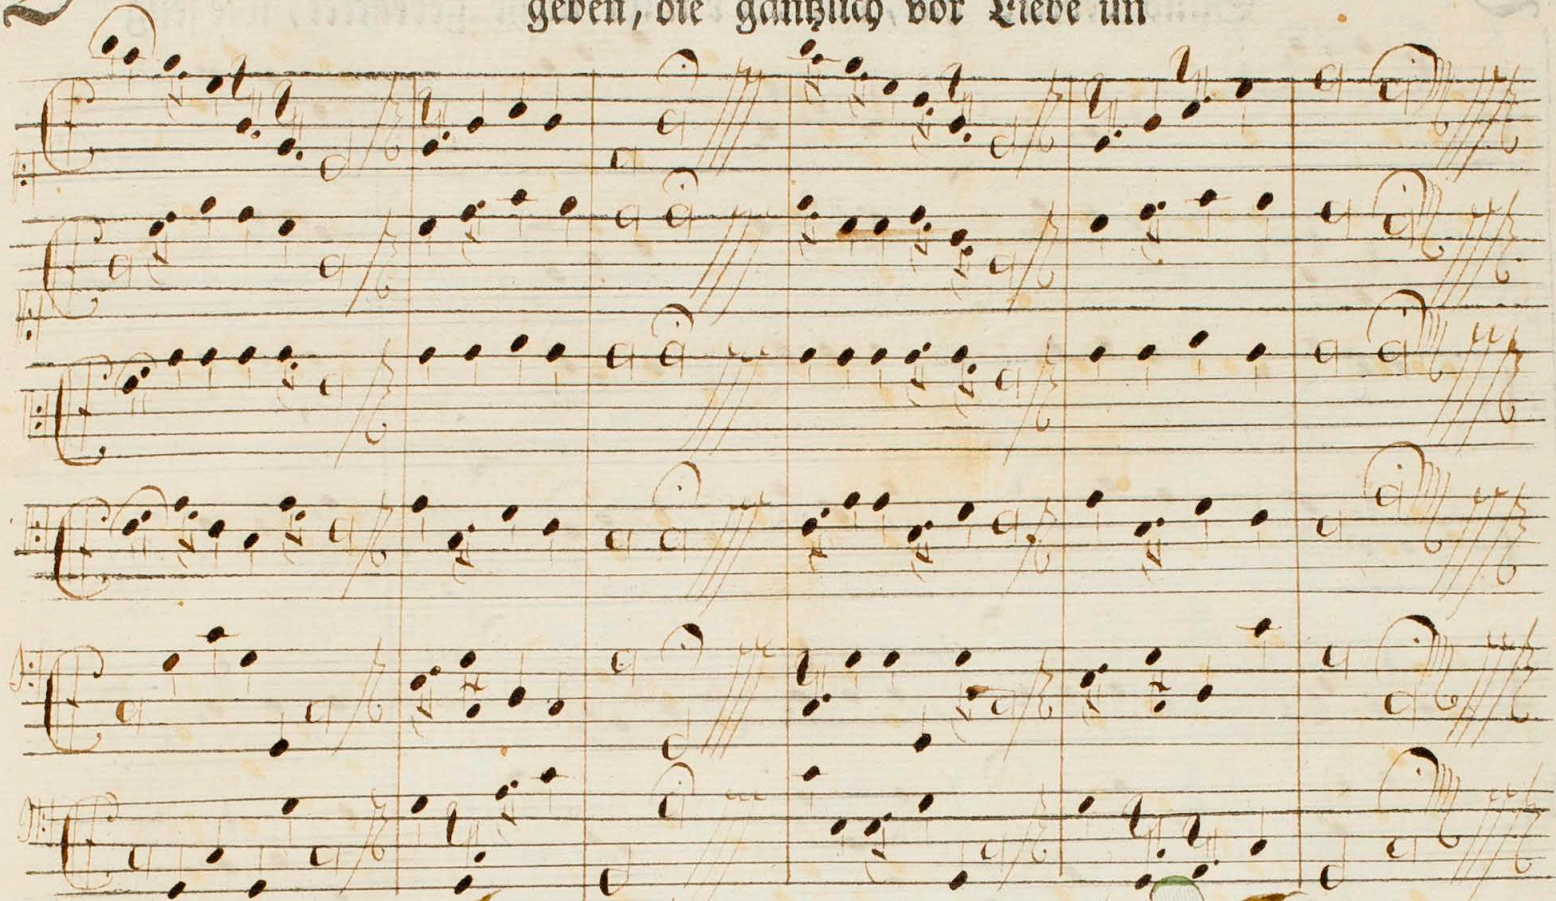 geben, die gäntzlich vor Liebe un